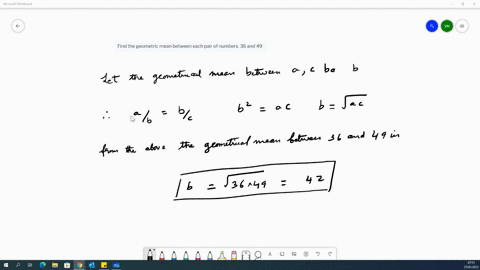 Microsoft Whiteboard
Find the geometric mean between each pair of numbers. 36 and 49
Let the geometrical mean between a, c be b
∴ a/b = b/c b² = ac b = √ac
from the above the geometrical mean between 36 and 49 is
b = √36×49 = 42